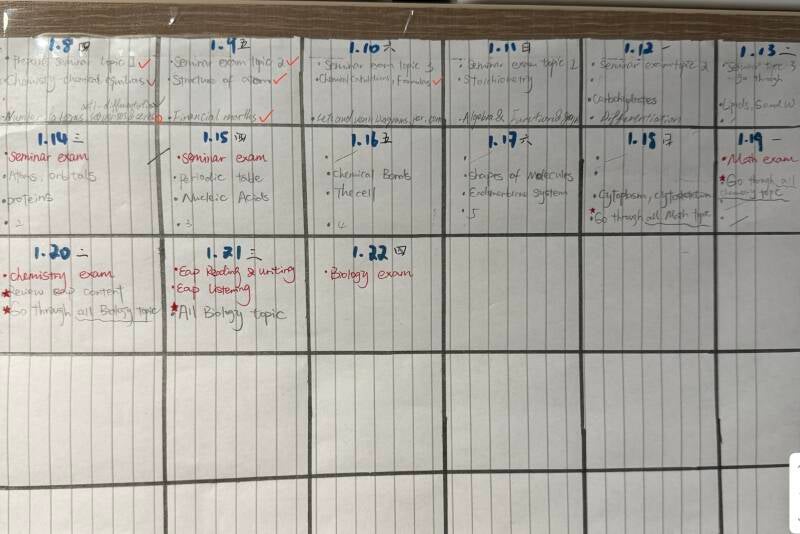 1.8 四
Prepare seminar topic 1 ✓
Chemistry chemical equations ✓
1.9 五
Seminar exam topic 2 ✓
Structure of atom ✓
Financial maths ✓
1.10 六
Seminar exam topic 3
Chemical Calculations, Formulas ✓
1.11 日
Seminar exam topic 1
Stoichiometry
Algebra & Functions
1.12 一
Seminar exam topic 2
Carbohydrates
Differentiation
1.13 二
Seminar topic 3
Go through
Lipids,
1.14 三
Seminar exam
Atoms, orbitals
proteins
2
1.15 四
Seminar exam
Periodic table
Nucleic Acids
3
1.16 五
Chemical Bonds
The cell
4
1.17 六
Shapes of molecules
Endomembrane System
5
1.18 日
Cytoplasm, cytoskeleton
Go through all Math topic
1.19 一
Math exam
Go through all
chemistry topic
1.20 二
Chemistry exam
Review eap content
Go through all Biology topic
1.21 三
Eap Reading & writing
Eap Listening
All Biology topic
1.22 四
Biology exam